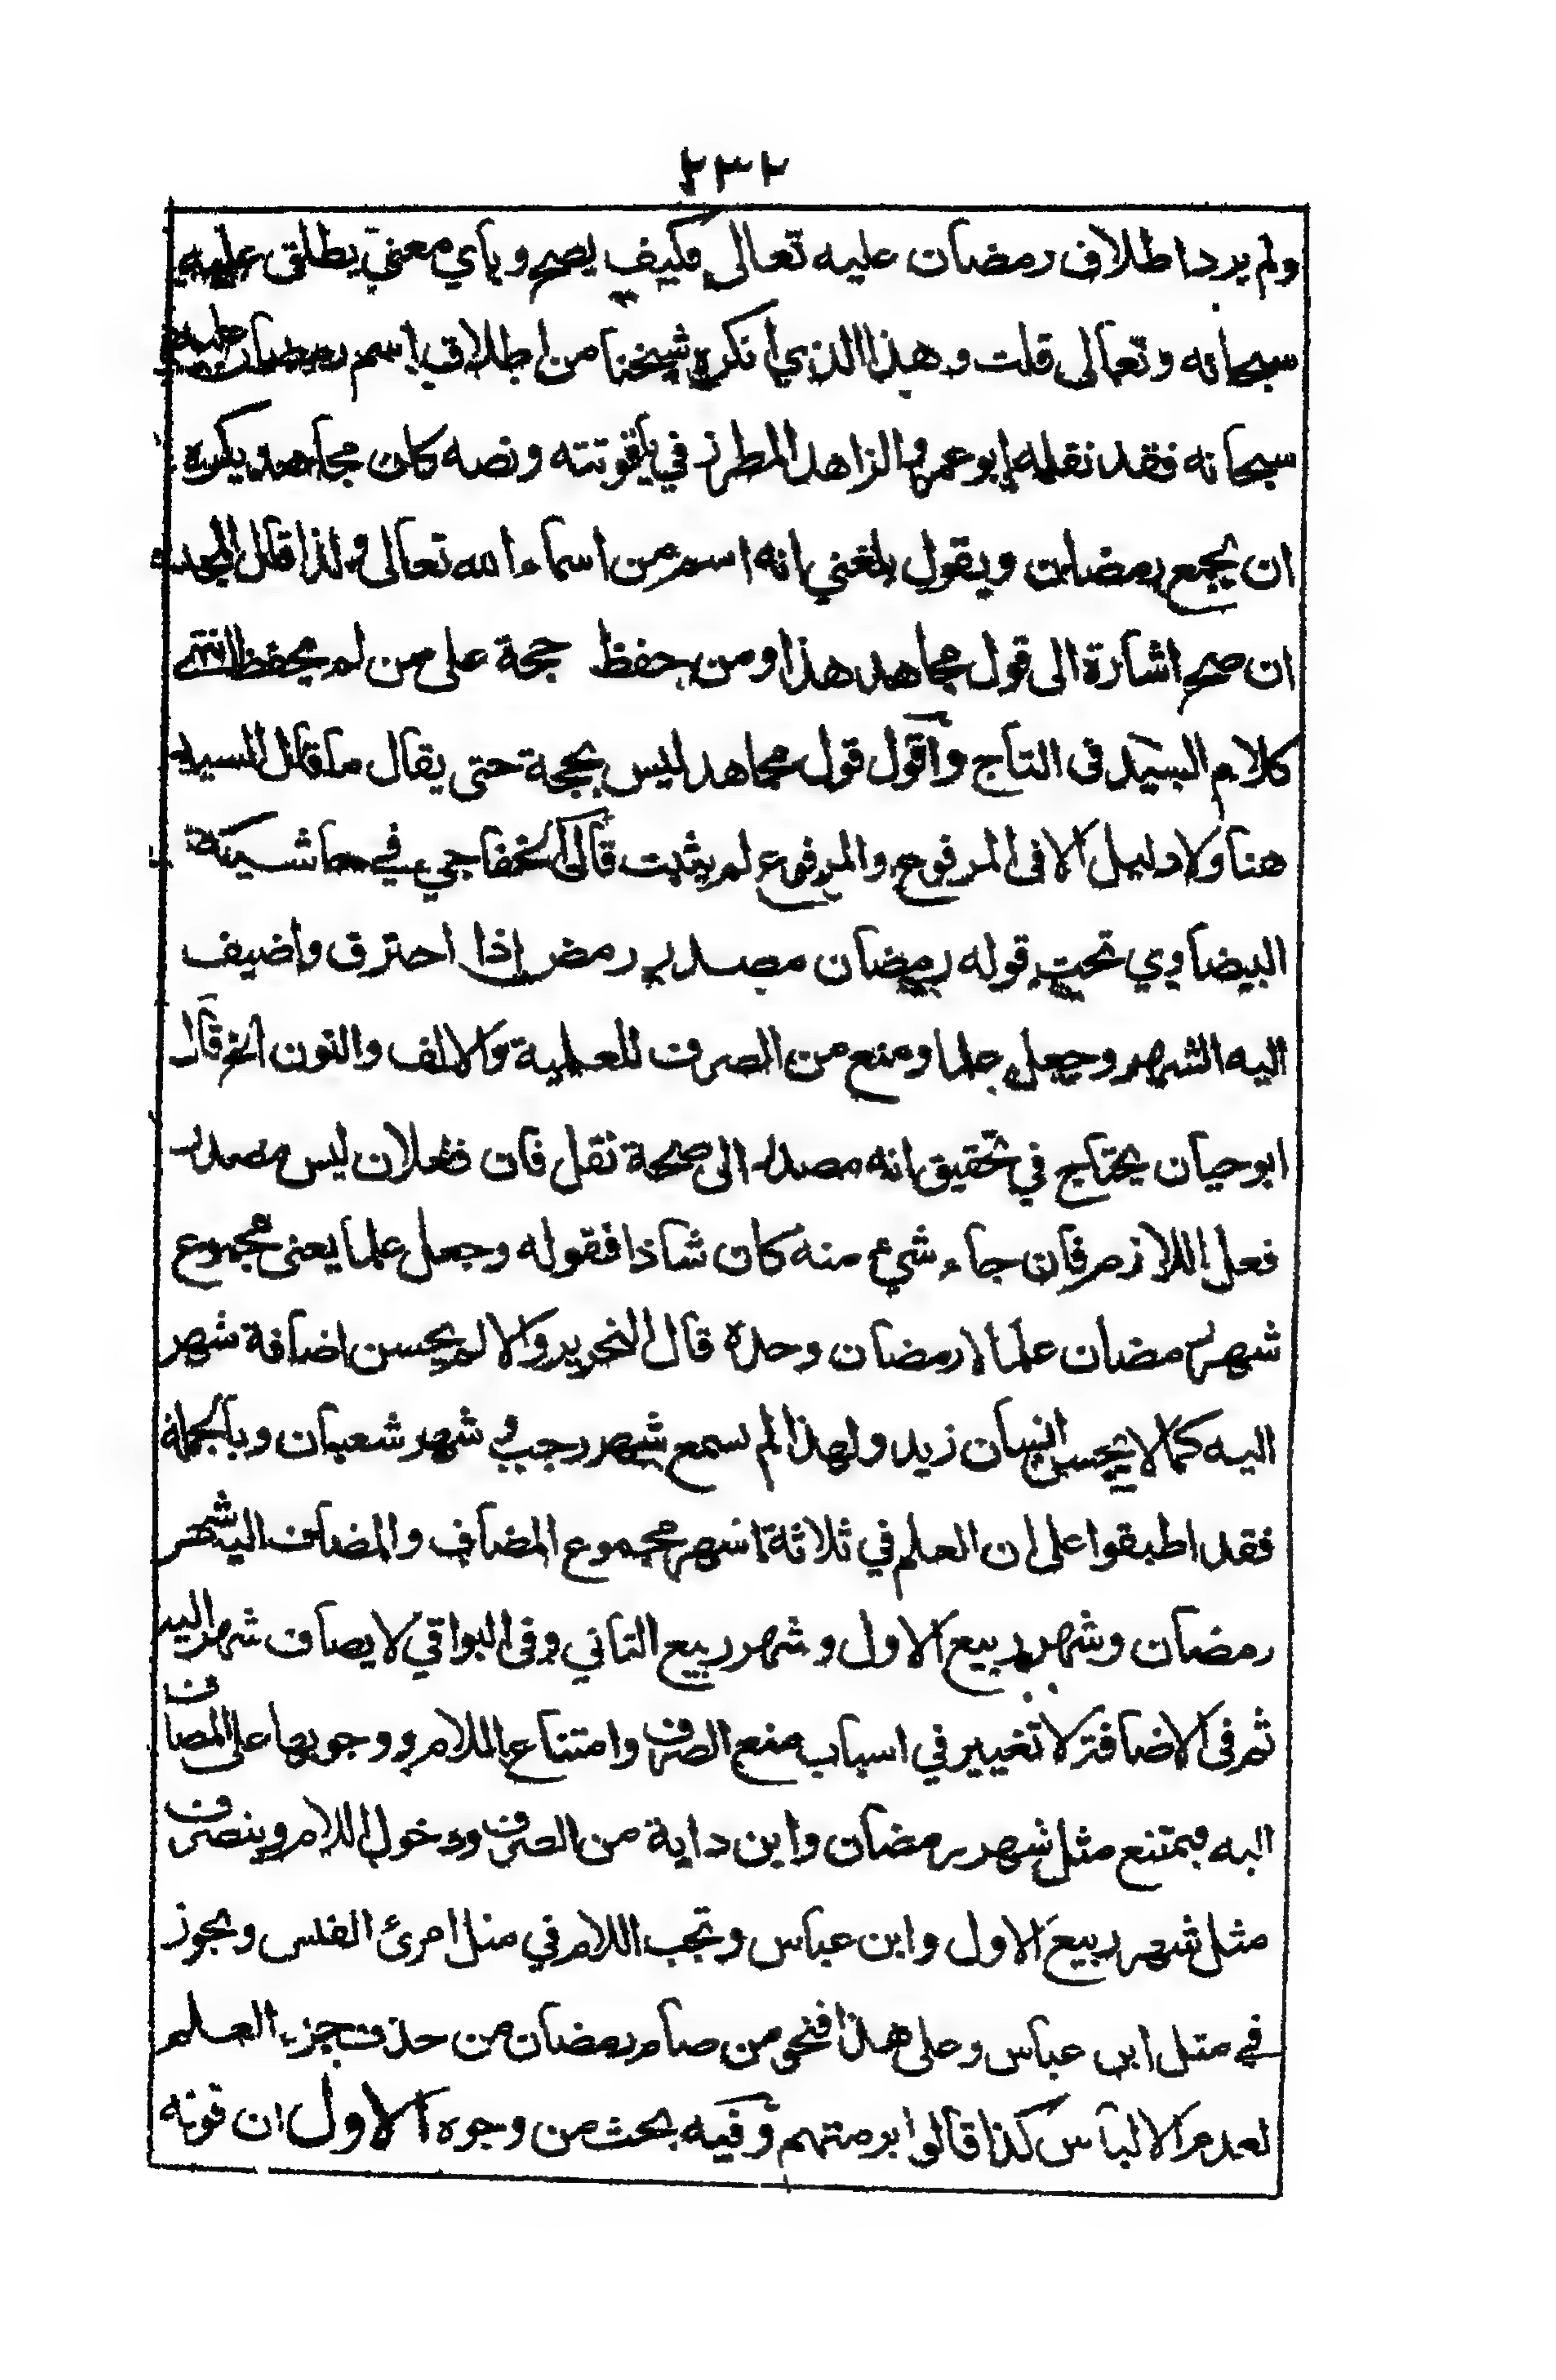 ٢٣٢
ولم يرد اطلاق رمضان عليه تعالى فكيف يصح وبأي معنى يطلق عليه
سبحانه وتعالى قلت وهذا الذي انكره شيخنا من اطلاق اسم رمضان عليه
سبحانه فقد نقله ابو عمر والزاهد المطرز في ياقوتته ونصه كان مجاهد يكره
ان يجمع رمضان ويقول بلغني انه اسم من اسماء الله تعالى ولذا قال المجد
ان صح اشارة الى قول مجاهد هذا ومن حفظ حجة على من لم يحفظ انتهى
كلام السيد فى التاج وأقول قول مجاهد ليس بحجة حتى يقال ما قال السيد
هنا ولا دليل الا فى المرفوع والمرفوع لم يثبت قال الخفاجي في حاشية
البيضاوي تحت قوله رمضان مصدر رمض إذا احترق واضيف
اليه الشهر وجعل علما ومنع من الصرف للعلمية والالف والنون الخ قال
ابو حيان يحتاج في تحقيق انه مصدر الى صحة نقل فان فعلان ليس مصدر
فعل اللازم فان جاء شيء منه كان شاذا فقوله وجعل علما يعنى مجموع
شهر رمضان علما لا رمضان وحده قال النحرير والا لم يحسن اضافة شهر
اليه كما لا يحسن انسان زيد ولهذا لم سمع شهر رجب وشهر شعبان وبالجملة
فقد اطبقوا على ان العلم في ثلاثة اشهر مجموع المضاف والمضاف اليه شهر
رمضان وشهر ربيع الاول وشهر ربيع الثاني وفى البواقي لا يضاف شهر اليه
ثم فى الاضافة لا تغيير في اسباب منع الصرف وامتناع اللام ووجوبها على المضاف
اليه فيمتنع مثل شهر رمضان وابن داية من الصرف ودخول اللام وينصرف
مثل شهر ربيع الاول وابن عباس وتجب اللام في مثل امرئ القيس ويجوز
في مثل ابن عباس وعلى هذا فنحو من صام رمضان من حذف جزء العلم
لعدم الالباس كذا قالوا برمتهم وفيه بحث من وجوه الاول ان قوله